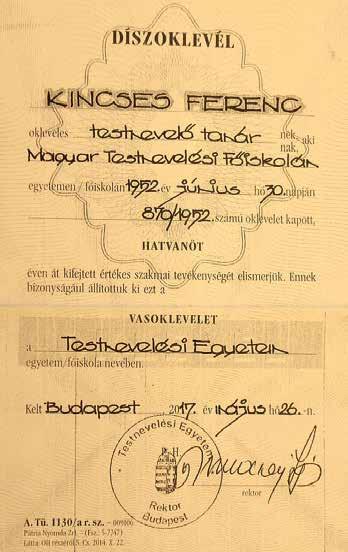 DÍSZOKLEVÉL
KINCSES FERENC
okleveles testnevelő tanár nek, nak, aki
Magyar Testnevelési Főiskolán
egyetemen / főiskolán 1952. év június hó 30. napján
870/1952. számú oklevelet kapott,
HATVANÖT
éven át kifejtett értékes szakmai tevékenységét elismerjük. Ennek
bizonyságául állítottuk ki ezt a
VASOKLEVELET
a Testnevelési Egyetem
egyetem/főiskola nevében.
Kelt Budapest, 2017. év május hó 26. -n.
Testnevelési Egyetem
P. H.
Rektor
Budapest
rektor
A. Tü. 1130/a r. sz. – 009006
Pátria Nyomda Zrt. – (Fsz.: 5-7747)